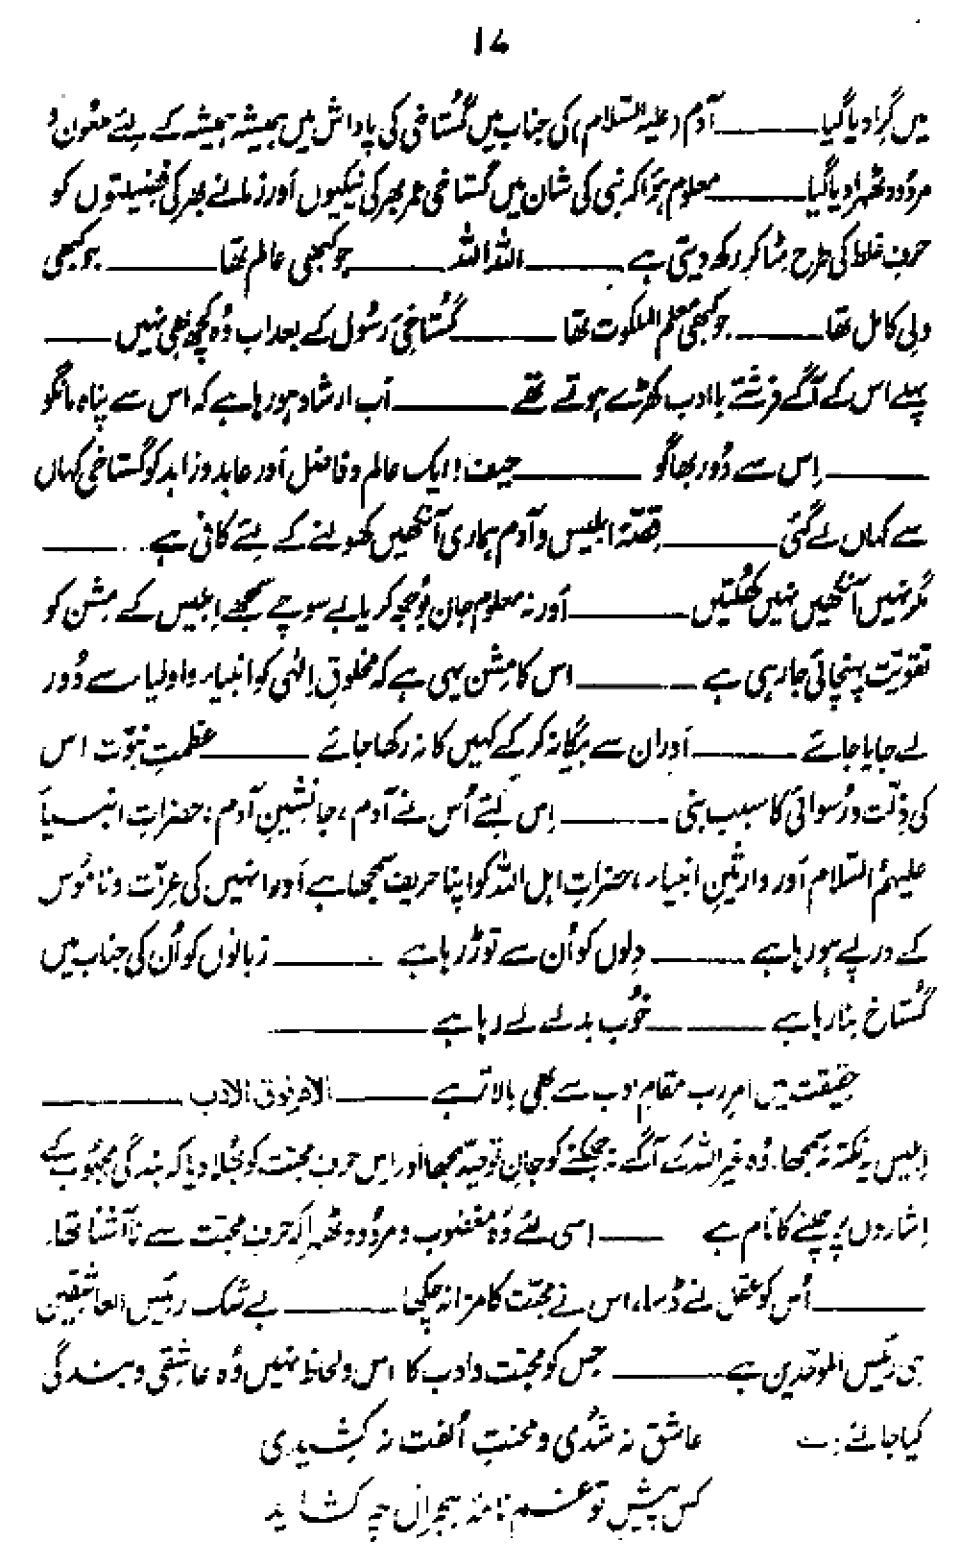 ۱۷
میں گرا دیا گیا ــــــــ آدم (علیہ السّلام) کی جناب میں گُستاخی کی پاداش میں ہمیشہ ہمیشہ کے لئے ملعون و
مردود ٹھہرا دیا گیا ــــــــ معلوم ہؤا کہ نبی کی شان میں گستاخی عمر بھر کی نیکیوں اَور زمانے بھر کی فضیلتوں کو
حرفِ غلط کی طرح مٹا کر رکھ دیتی ہے ــــــــ اللہ اللہ ــــــــ جو کبھی عالم تھا ــــــــ جو کبھی
ولیِ کامل تھا ــــــــ جو کبھی معلم الملکوت تھا ــــــــ گُستاخیِ رَسُول کے بعد اب وُہ کچھ بھی نہیں ــــــــ
پہلے اس کے آگے فرشتے با ادب کھڑے ہوتے تھے ــــــــ اَب ارشاد ہو رہا ہے کہ اس سے پناہ مانگو
ــــــــ اِس سے دُور بھاگو ــــــــ حیف! ایک عالم و فاضل اَور عابد و زاہد کو گستاخی کہاں
سے کہاں لے گئی ــــــــ قِصّۂ ابلیس و آدم ہماری آنکھیں کھولنے کے لئے کافی ہے ــــــــ
مگر نہیں آنکھیں نہیں کھُلتیں ــــــــ اَور نہ معلوم جان بُوجھ کر یا بے سوچے سمجھے ابلیس کے مشن کو
تقویت پہنچائی جا رہی ہے ــــــــ اس کا مِشن یہی ہے کہ مخلوقِ اِلٰہی کو انبیاء و اولیاء سے دُور
لے جایا جائے ــــــــ اَور ان سے بیگانہ کر کے کہیں کا نہ رکھا جائے ــــــــ عظمتِ نبوّت اس
کی ذِلّت و رُسوائی کا سبب بنی ــــــــ اِس لئے اُس نے آدم ، جانشینِ آدم : حضراتِ انبیاءَ
علیہمُ السّلام اَور وارثینِ انبیاء ، حضراتِ اہل اللہ کو اپنا حریف سمجھا ہے اَور انہیں کی عزّت و ناموس
کے درپے ہو رہا ہے ــــــــ دِلوں کو اُن سے توڑ رہا ہے ــــــــ زبانوں کو اُن کی جناب میں
گُستاخ بنا رہا ہے ــــــــ خُوب بدلے لے رہا ہے ــــــــ
حقیقت میں امرِ رب مقامِ ادب سے بھی بالاتر ہے ــــــــ الامر فوق الادب ــــــــ
ابلیس یہ نکتہ نہ سمجھا . وُہ غیر اللہ کے آگے نہ جھکنے کو جانِ توحید سمجھا اَور اِس حرفِ محبّت کو بھُلا دیا کہ بندگی محبُوب کے
اِشاروں پر چلنے کا نام ہے ــــــــ اسی لئے وُہ مغضوب و مردُود ٹھہرا کہ حرفِ محبّت سے نا آشنا تھا .
ــــــــ اُس کو عقل نے ڈسا ، اس نے محبّت کا مزا نہ چکھا ــــــــ بے شک رئیس العاشقین
ہی رئیس الموحّدین ہے ــــــــ جِس کو محبّت و ادب کا پاس و لحاظ نہیں وُہ عاشقی و بندگی
کیا جانے : عاشق نہ شُدی و محنتِ اُلفت نہ کشیدی
کس پیشِ تو غم نامۂ ہجراں چہ کشاید